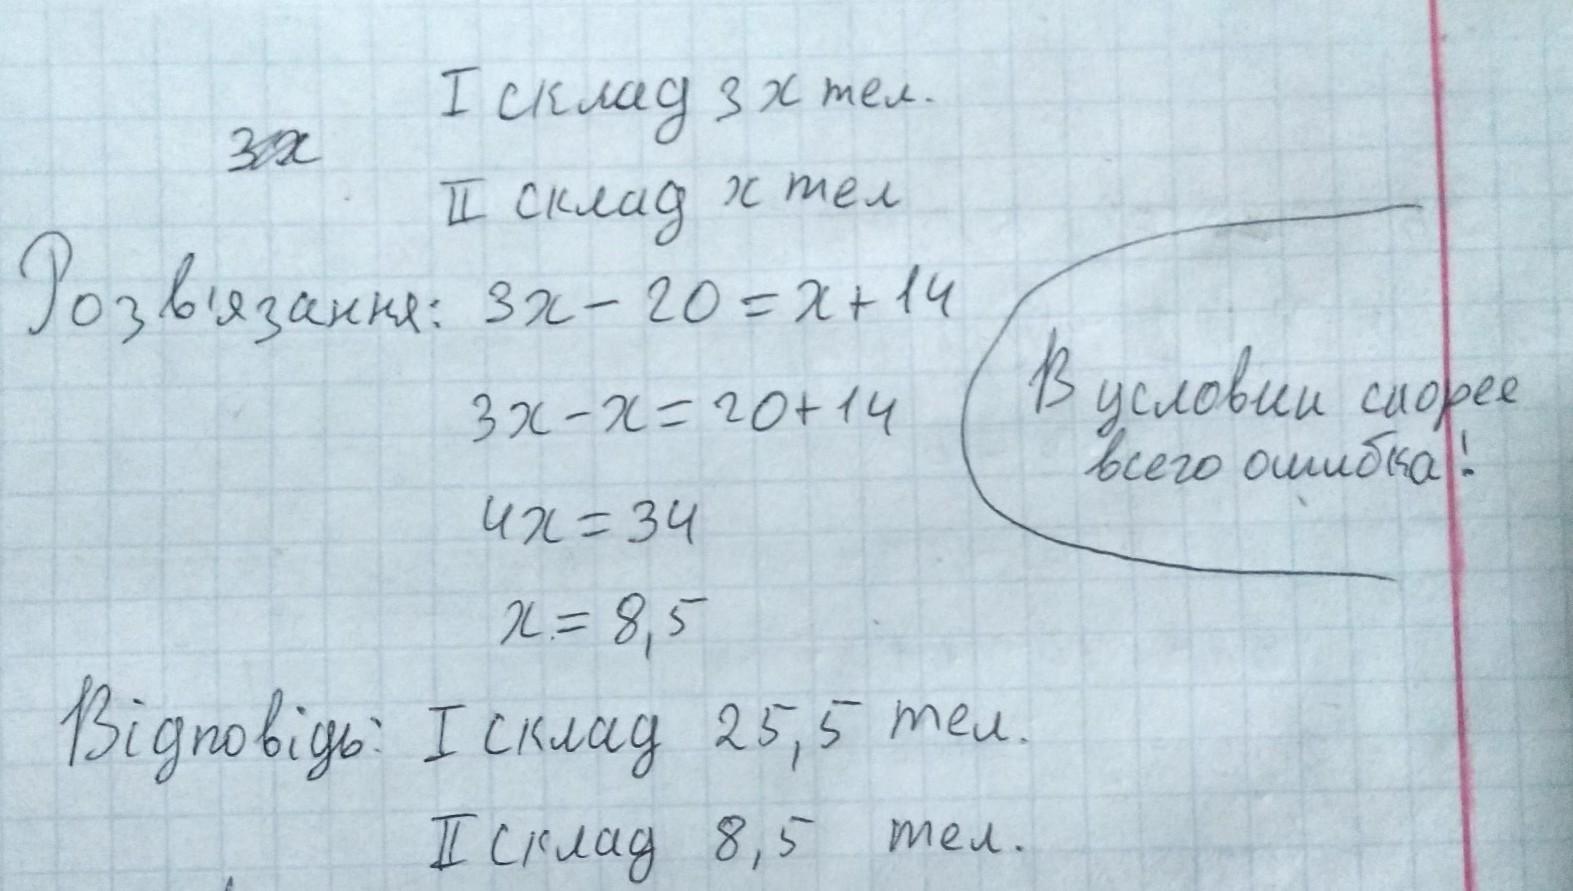 I склад 3x тел.
3x
II склад x тел
Розв'язання: 3x - 20 = x + 14
3x - x = 20 + 14
В условии скорее
всего ошибка!
4x = 34
x = 8,5
Відповідь: I склад 25,5 тел.
II склад 8,5 тел.